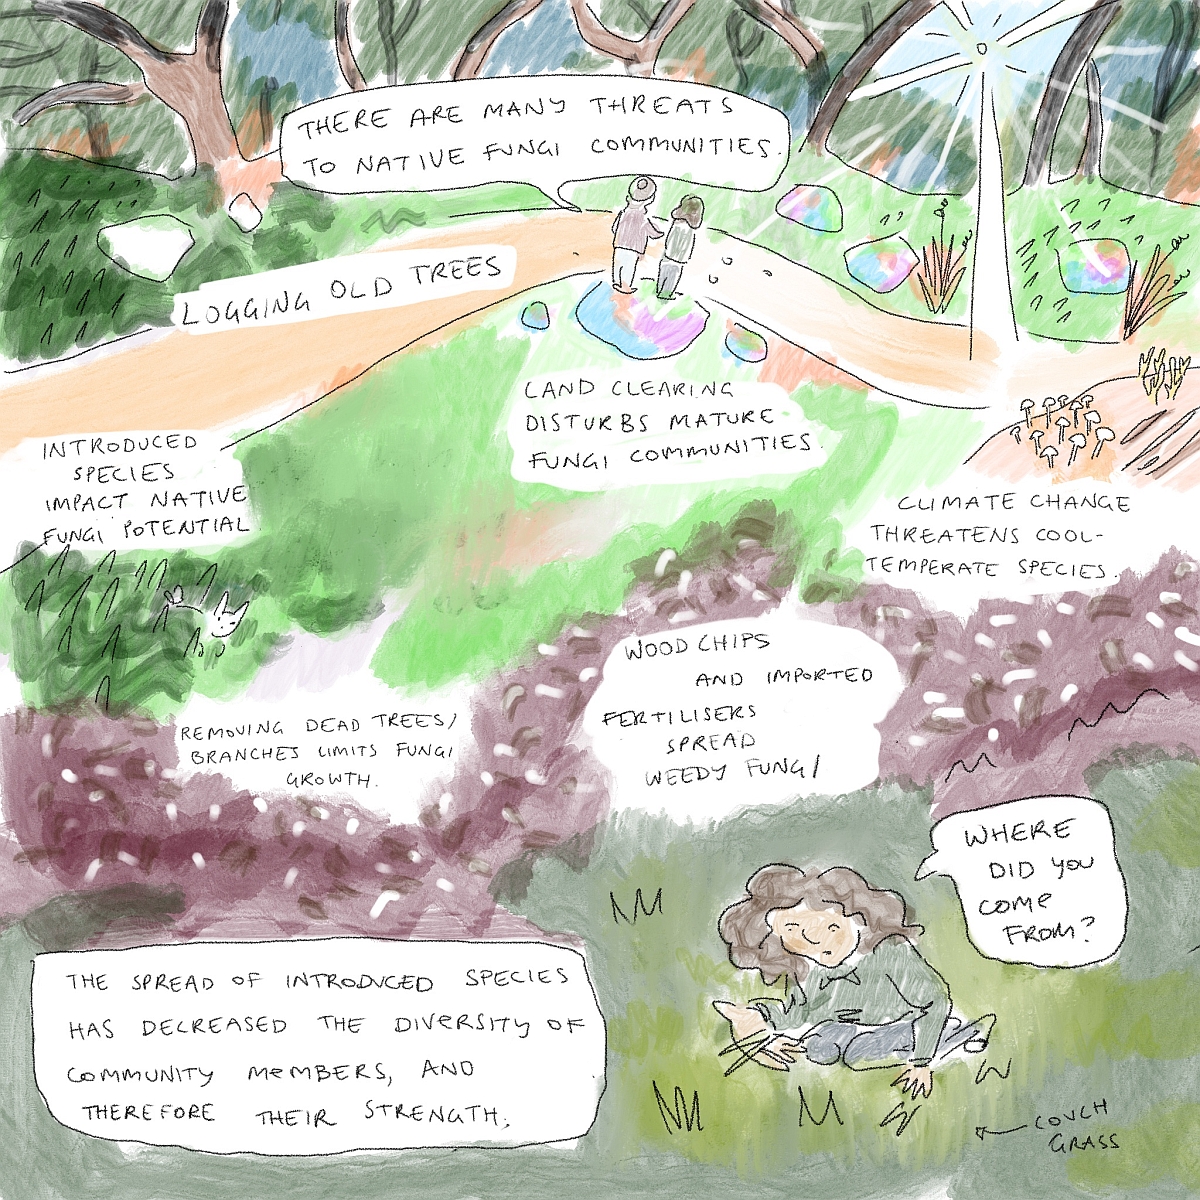 THERE ARE MANY THREATS
TO NATIVE FUNGI COMMUNITIES.
LOGGING OLD TREES
LAND CLEARING
DISTURBS MATURE
FUNGI COMMUNITIES.
INTRODUCED
SPECIES
IMPACT NATIVE
FUNGI POTENTIAL.
CLIMATE CHANGE
THREATENS COOL-
TEMPERATE SPECIES.
WOOD CHIPS
AND IMPORTED
FERTILISERS
SPREAD
WEEDY FUNGI
REMOVING DEAD TREES/
BRANCHES LIMITS FUNGI
GROWTH.
WHERE
DID YOU
COME
FROM?
THE SPREAD OF INTRODUCED SPECIES
HAS DECREASED THE DIVERSITY OF
COMMUNITY MEMBERS, AND
THEREFORE THEIR STRENGTH.
COUCH
GRASS